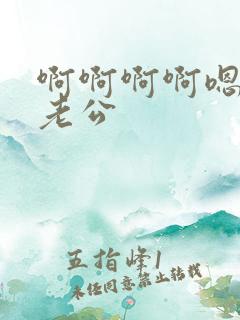 啊啊啊啊嗯
老公
五指峰1
未经同意禁止转载